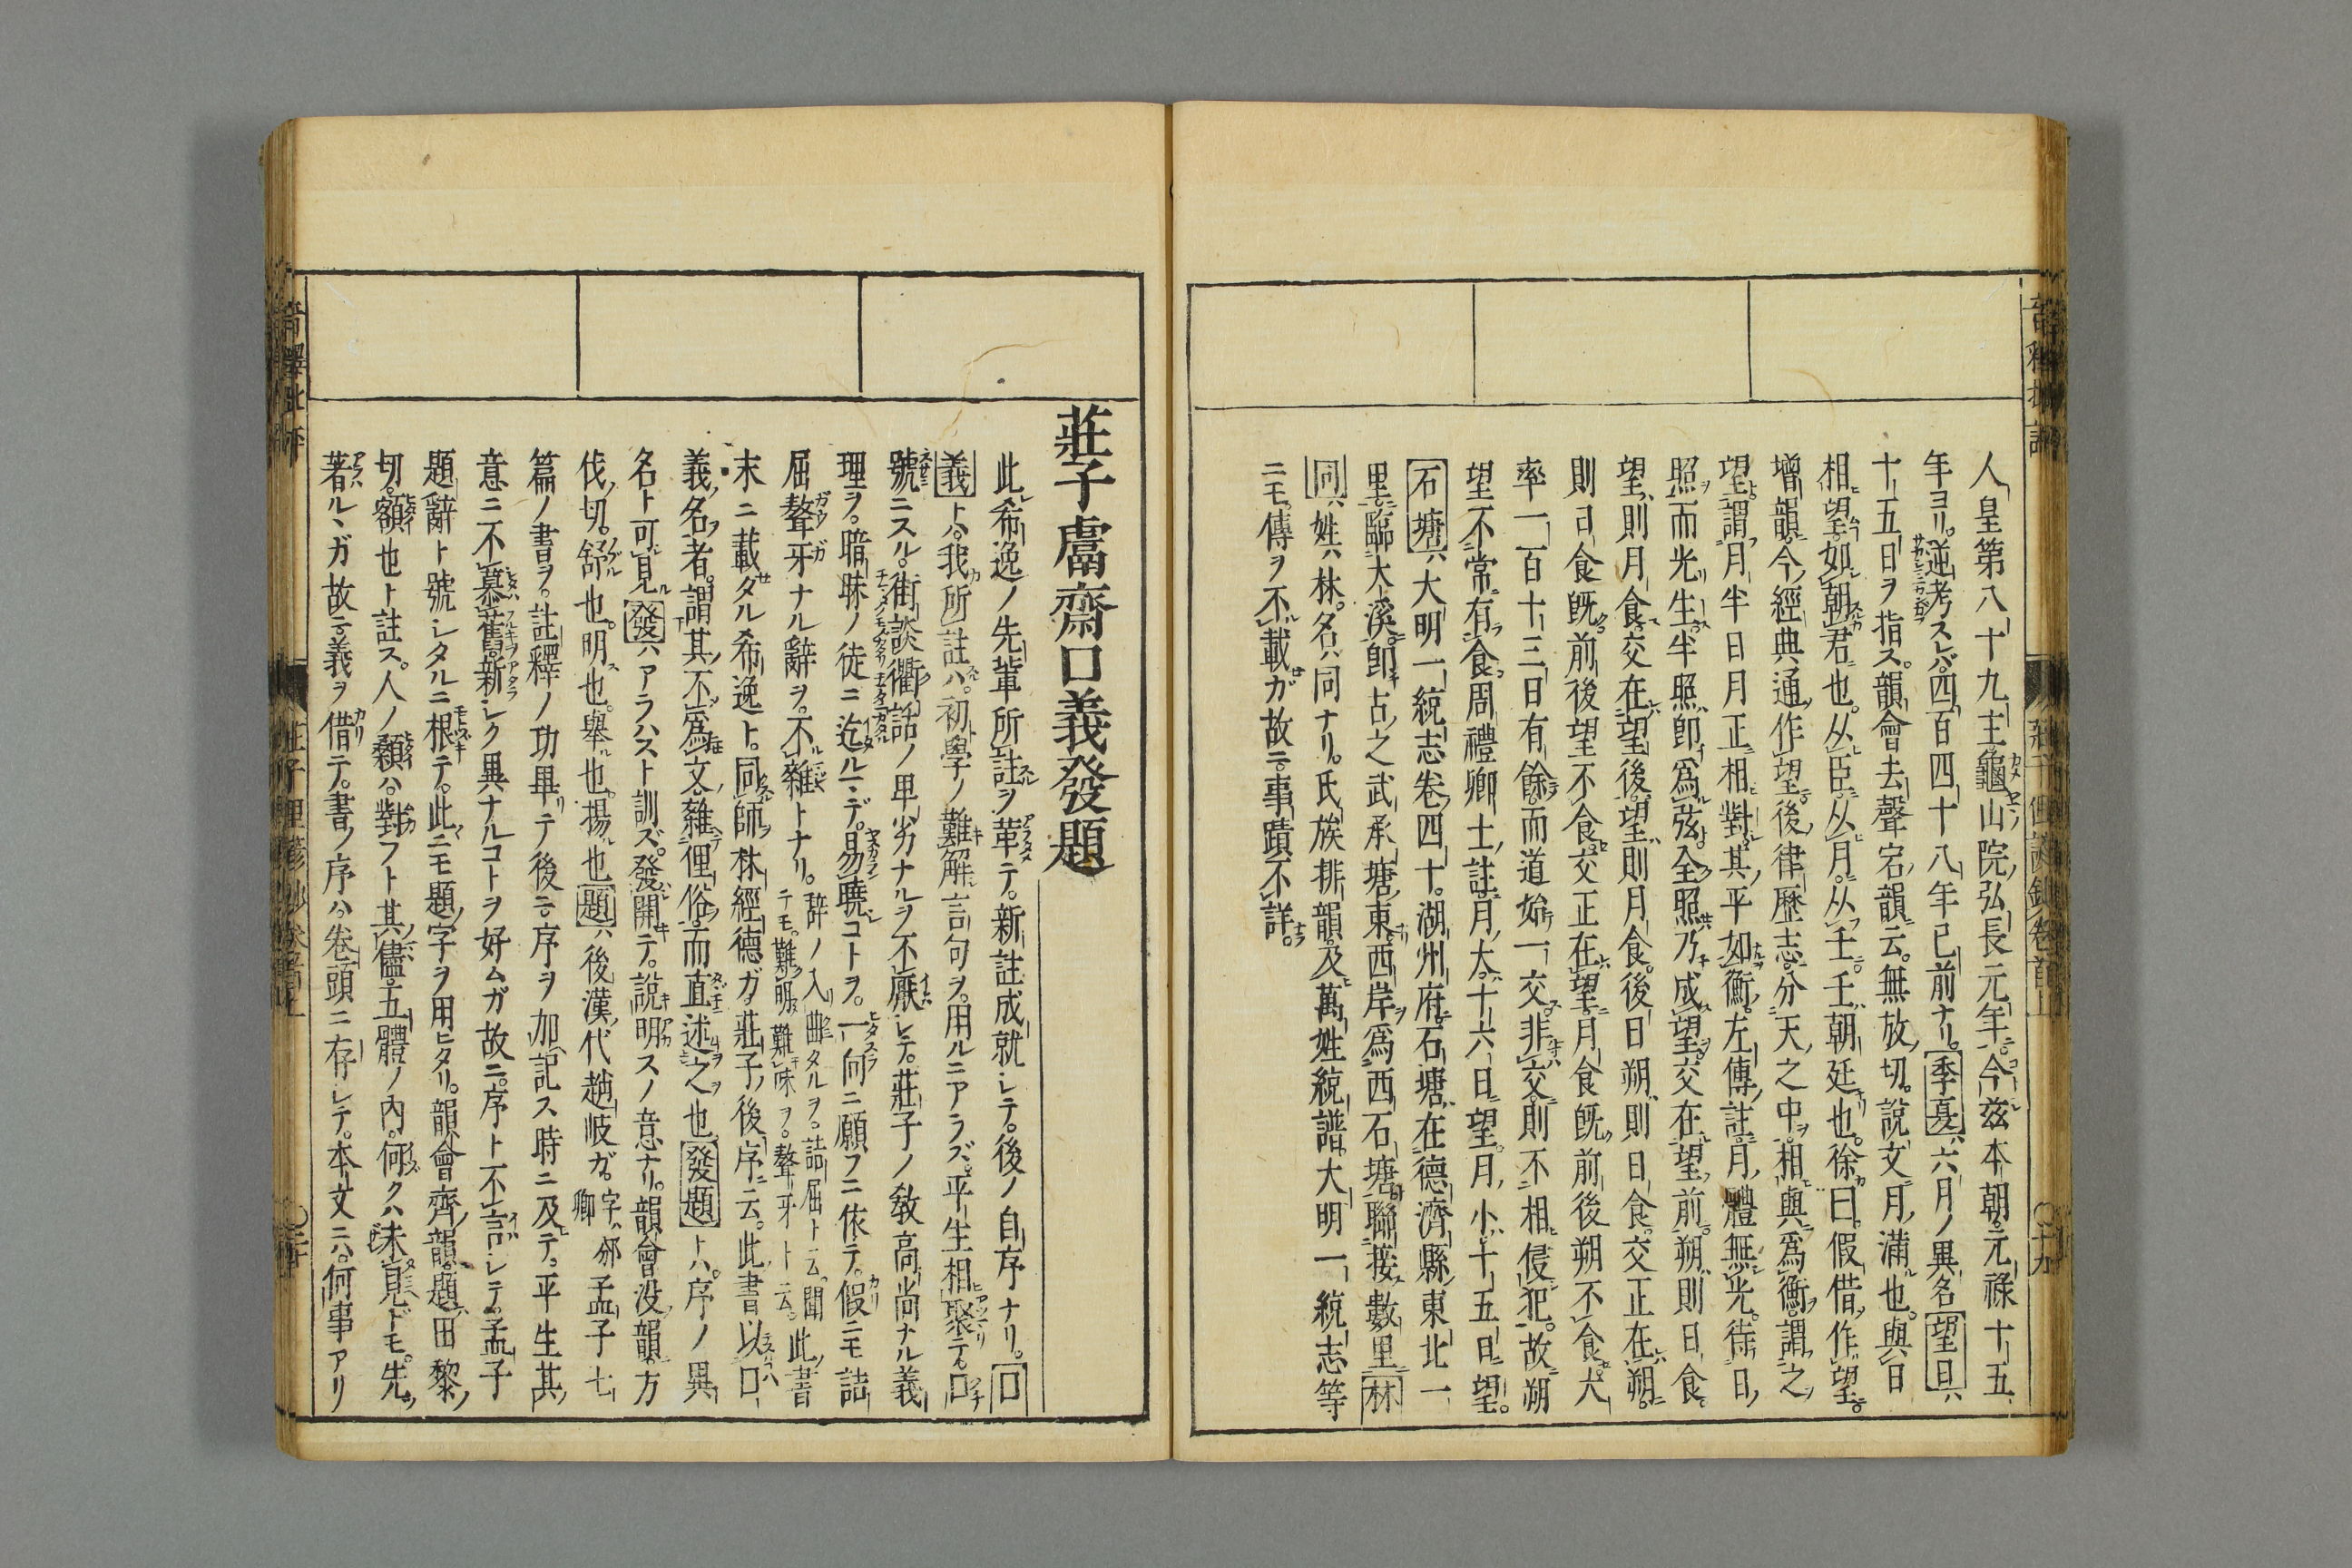 人皇第八十九主龜山院弘長元年今茲本朝元禄十五
年ヨリ逆考スレバ四百四十八年已前ナリ季夏ハ六月ノ異名望日ハ
十五日ヲ指ス韻會去聲宕韻云無放切說文月滿也與日
相望如朝君也从臣从月从壬壬朝廷也徐曰假借作望
增韻今經典通作望後律歷志分天之中相與爲衡謂之
望謂月半日月正相對其平如衡左傳註月體無光待日
照而光生半照即爲弦全照乃成望交在望前朔則日食
望則月食交在望後望則月食後日朔則日食交正在朔
則日食既前後望不食交正在望月食既前後朔不食大
率一百七十三日有餘而道始一交非交則不相侵犯故朔
望不常有食周禮卿士註月大十六日望月小十五日望
石塘ハ大明一統志卷四十湖州府石塘在德濟縣東北一
里臨大溪即古之武承塘東西岸爲西石塘聯接數里林
同ハ姓ハ林名ハ同ナリ氏族排韻及萬姓統譜大明一統志等
ニモ傳ヲ不載ガ故ニ事蹟不詳
莊子鬳齋口義發題
此希逸ノ先輩所註ヲ革テ新註成就シテ後ノ自序ナリ口
義トハ我所註ハ初學ノ難解言句ヲ用ルニアラズ平生相聚テ口
號ニスル街談衢話ノ卑劣ナルヲ不厭シテ莊子ノ教高尚ナル義
理ヲ暗昧ノ徒ニ迄ルマデ易曉コトヲ一向ニ願フニ依テ假ニモ詰
屈聱牙ナル辭ヲ不雜トナリ辞ノ入曲タルヲ詰屈ト云聞テモ難明難味ヲ聱牙ト云此書
末ニ載タル希逸ト同師林經德ガ莊子後序ニ云此書以口
義名者謂其不爲文雜俚俗而直述之也發題トハ序ノ異
名ト可見發ハアラハスト訓ズ發開テ說明スノ意ナリ韻會没韻方
伐切舒也明也舉也揚也題ハ後漢代趙岐ガ字ハ邠卿孟子七
篇ノ書ヲ註釋ノ功畢テ後ニ序ヲ加記ス時ニ及テ平生其
意ニ不慕舊新シク異ナルコトヲ好ムガ故ニ序ト不言シテ孟子
題辭ト號シタルニ根テ此ニモ題字ヲ用ヒタリ韻會齊韻題田黎
切額也ト註ス人ノ顙ハ對フト其儘五體ノ內何クハ未見ドモ先
著ルヽガ故ニ義ヲ借テ書ノ序ハ卷頭ニ存シテ本文ニハ何事アリ